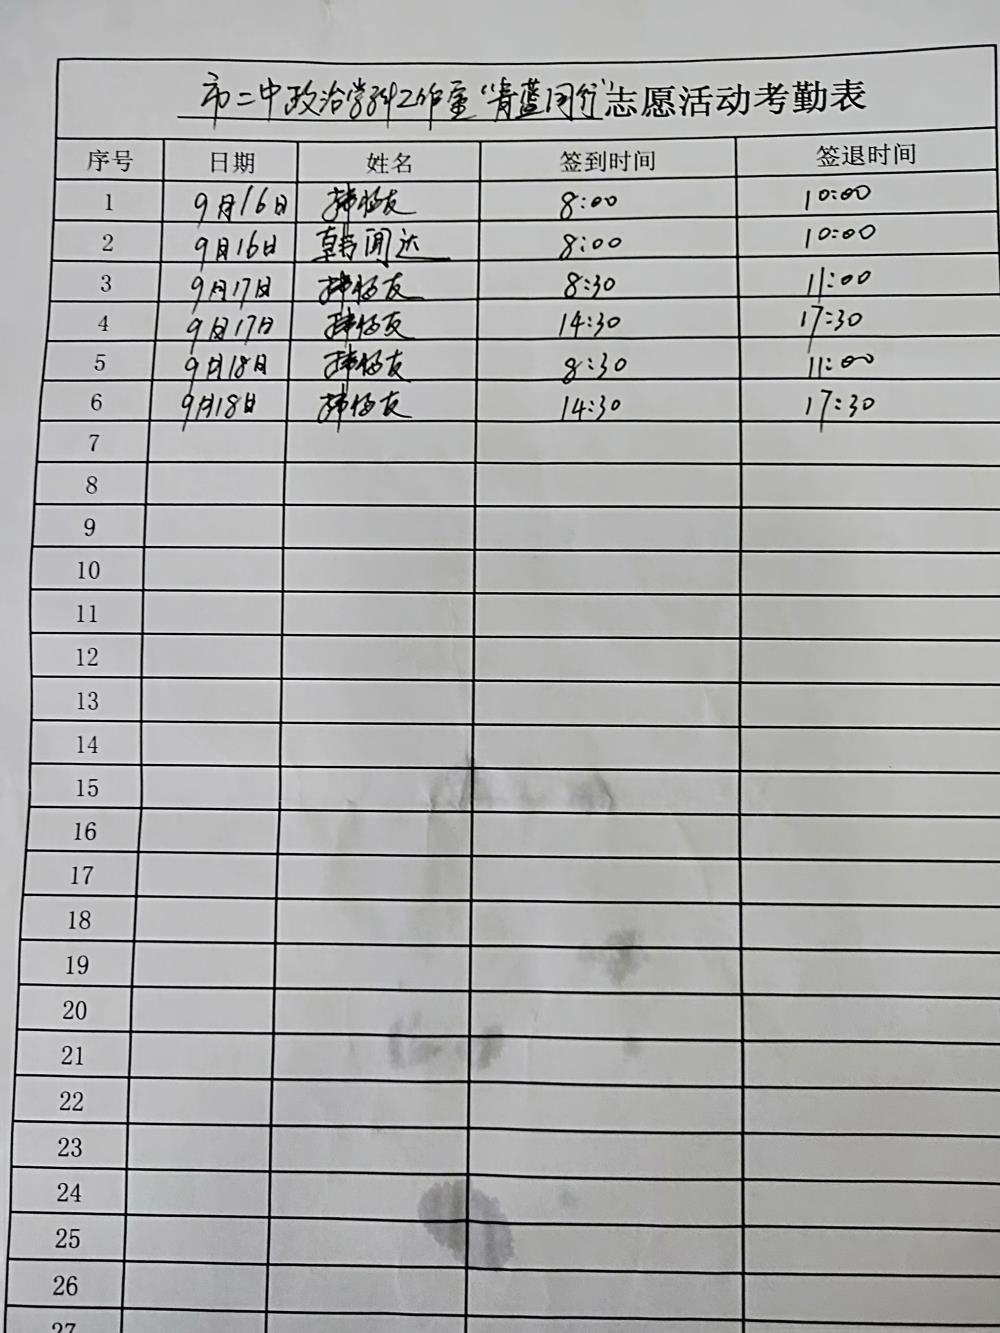 市二中政治学科工作室“青蓝同行”志愿活动考勤表
序号 日期 姓名 签到时间 签退时间
1 9月16日 8:00 10:00
2 9月16日 韩闻达 8:00 10:00
3 9月17日 8:30 11:00
4 9月17日 14:30 17:30
5 9月18日 8:30 11:00
6 9月18日 14:30 17:30
7
8
9
10
11
12
13
14
15
16
17
18
19
20
21
22
23
24
25
26
27